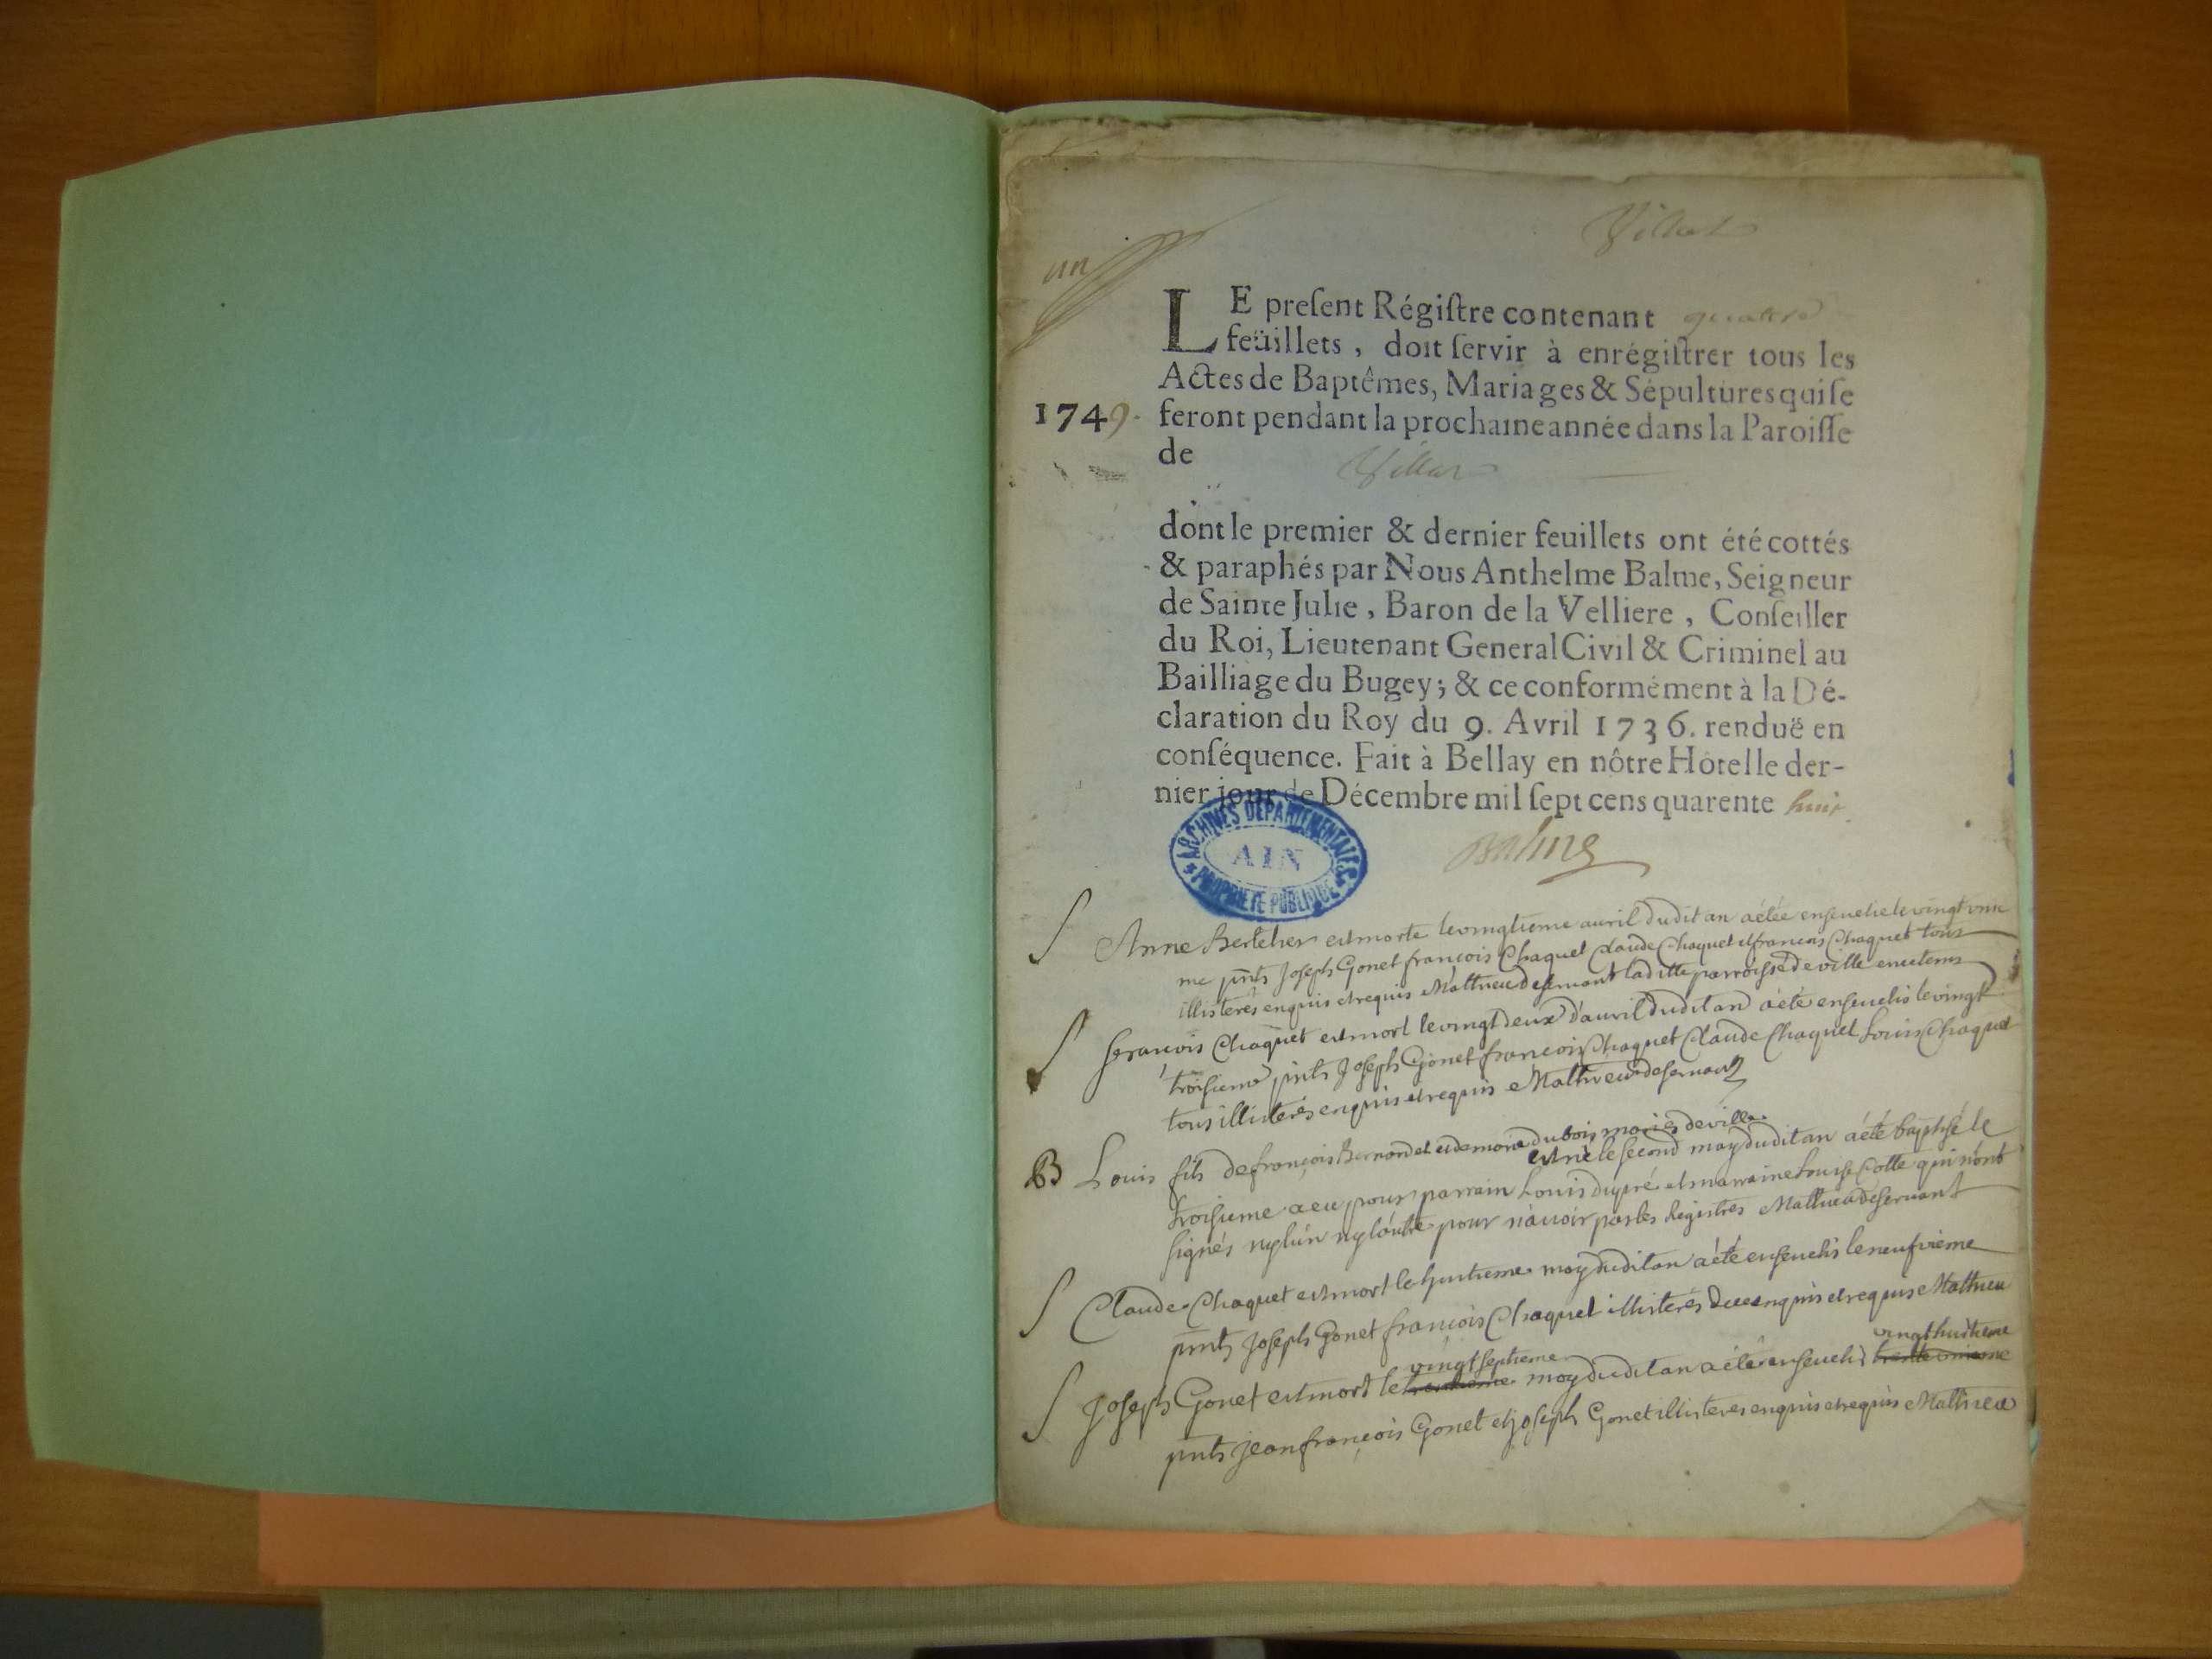 un
LE preſent Régiſtre contenant quatre
feüillets, doit ſervir à enrégiſtrer tous les
Actes de Baptêmes, Mariages & Sépultures qui ſe
1749. feront pendant la prochaine année dans la Paroiſſe
de
dont le premier & dernier feuillets ont été cottés
& paraphés par Nous Anthelme Balme, Seigneur
de Sainte Julie, Baron de la Velliere, Conſeiller
du Roi, Lieutenant General Civil & Criminel au
Bailliage du Bugey; & ce conformément à la Dé-
claration du Roy du 9. Avril 1736. renduë en
conſéquence. Fait à Bellay en nôtre Hôtel le der-
nier jour de Décembre mil ſept cens quarente huit
Balme
ARCHIVES DEPARTEMENTALES
AIN
PROPRIETE PUBLIQUE
S Anne est morte le vingtieme avril dudit an aétée ensevelie le vingt unie
me pnts Joseph Gonet françois Chaquet Claude Chaquet et françois Chaquet tous
illisterés enquis et requis Mathieu deservant laditte parroisse de ville en ce tems
S françois Chaquet est mort le vingt deux d'avril dudit an aété ensevelis le vingt
troisieme pnts Joseph Gonet françois Chaquet Claude Chaquet Louis Chaquet
tous illisterés enquis et requis Mathieu deservant
B Louis fils de françois Bernardet et de marie dubois mariés de ville
est né le second may dudit an aété baptisé le
troisieme a eu pour parrain Louis dupré et marraine Louise Cotte qui n'ont
signés ny l'un ny l'autre pour n'avoir par les Registres Mathieu deservant
S Claude Chaquet est mort le huitieme may dudit an aété ensevelis le neufvieme
pnts Joseph Gonet françois Chaquet illisterés enquis et requis Mathieu
vingt septieme vingt huitieme
S Joseph Gonet est mort le may dudit an aété ensevelis
pnts jean françois Gonet et joseph Gonet illisterés enquis et requis Mathieu